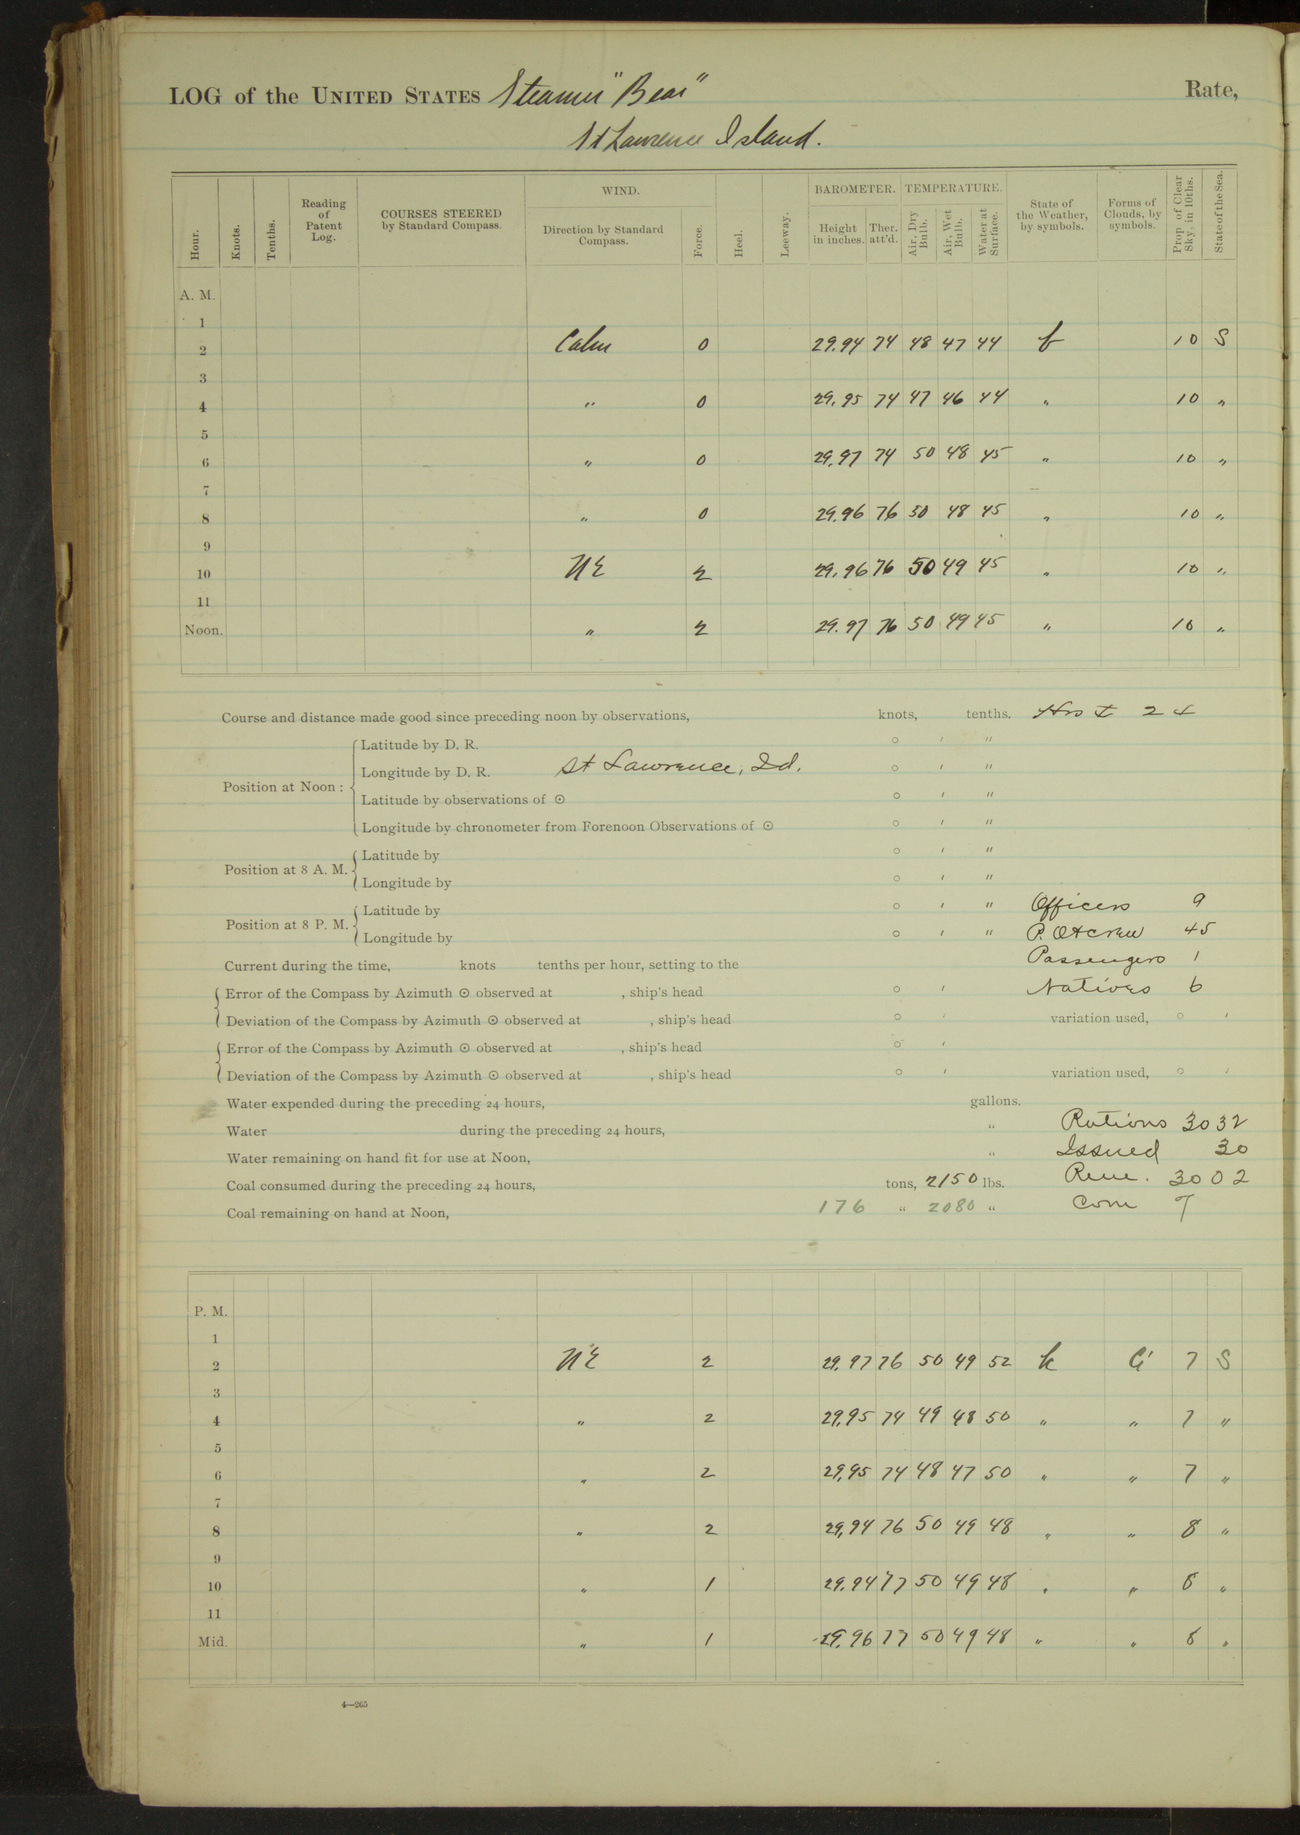 LOG of the UNITED STATES Steamer "Bear" Rate,
St Lawrence Island.
Hour. Knots. Tenths. Reading of Patent Log. COURSES STEERED by Standard Compass. WIND. Direction by Standard Compass. Force. Heel. Leeway. BAROMETER. Height in inches. Ther. att'd. TEMPERATURE. Air, Dry Bulb. Air, Wet Bulb. Water at Surface. State of the Weather, by symbols. Forms of Clouds, by symbols. Prop. of Clear Sky, in 10ths. State of the Sea.
A. M.
1
2 Calm 0 29.94 74 48 47 44 b 10 S
3
4 " 0 29.95 74 47 46 44 " 10 "
5
6 " 0 29.97 74 50 48 45 " 10 "
7
8 " 0 29.96 76 50 48 45 " 10 "
9
10 NE 2 29.96 76 50 49 45 " 10 "
11
Noon. " 2 29.97 76 50 49 45 " 10 "
Course and distance made good since preceding noon by observations, knots, tenths. 24
Position at Noon :
Latitude by D. R. ° ′ ″
Longitude by D. R. St Lawrence, Id. ° ′ ″
Latitude by observations of ☉ ° ′ ″
Longitude by chronometer from Forenoon Observations of ☉ ° ′ ″
Position at 8 A. M.
Latitude by ° ′ ″
Longitude by ° ′ ″
Position at 8 P. M.
Latitude by ° ′ ″ Officers 9
Longitude by ° ′ ″ P. O & Crew 45
Current during the time, knots tenths per hour, setting to the Passengers 1
Error of the Compass by Azimuth ☉ observed at , ship's head ° ′ Natives 6
Deviation of the Compass by Azimuth ☉ observed at , ship's head ° ′ variation used, ° ′
Error of the Compass by Azimuth ☉ observed at , ship's head ° ′
Deviation of the Compass by Azimuth ☉ observed at , ship's head ° ′ variation used, ° ′
Water expended during the preceding 24 hours, gallons.
Water during the preceding 24 hours, " Rations 3032
Water remaining on hand fit for use at Noon, " Issued 30
Coal consumed during the preceding 24 hours, tons, 2150 lbs. Rem. 3002
Coal remaining on hand at Noon, 176 " 2080 " Com 7
P. M.
1
2 NE 2 29.97 76 50 49 52 bc Ci 7 S
3
4 " 2 29.95 74 49 48 50 " " 7 "
5
6 " 2 29.95 74 48 47 50 " " 7 "
7
8 " 2 29.94 76 50 49 48 " " 8 "
9
10 " 1 29.94 77 50 49 48 " " 8 "
11
Mid. " 1 29.96 77 50 49 48 " " 8 "
4—265